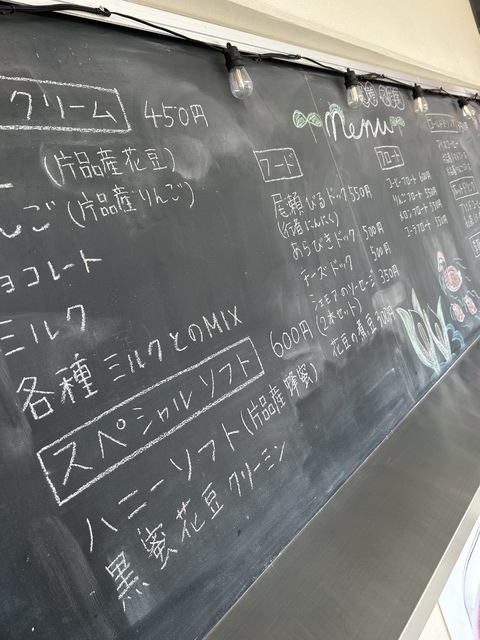 クリーム 450円
(片品産花豆)
んご(片品産りんご)
ョコレート
ミルク
各種ミルクとのMIX
スペシャルソフト 600円
ハニーソフト(片品産蜂蜜)
黒蜜花豆クリーミン
Menu
フード
尾瀬ひるドック 550円
(行者にんにく)
あらびきドック 500円
チーズドック 500円
ジェモアのソーセージ 350円
(2本セット)
花豆の煮豆 300円
フロート
コーヒーフロート 600円
りんごフロート 550円
メロンフロート 550円
コーラフロート 550円